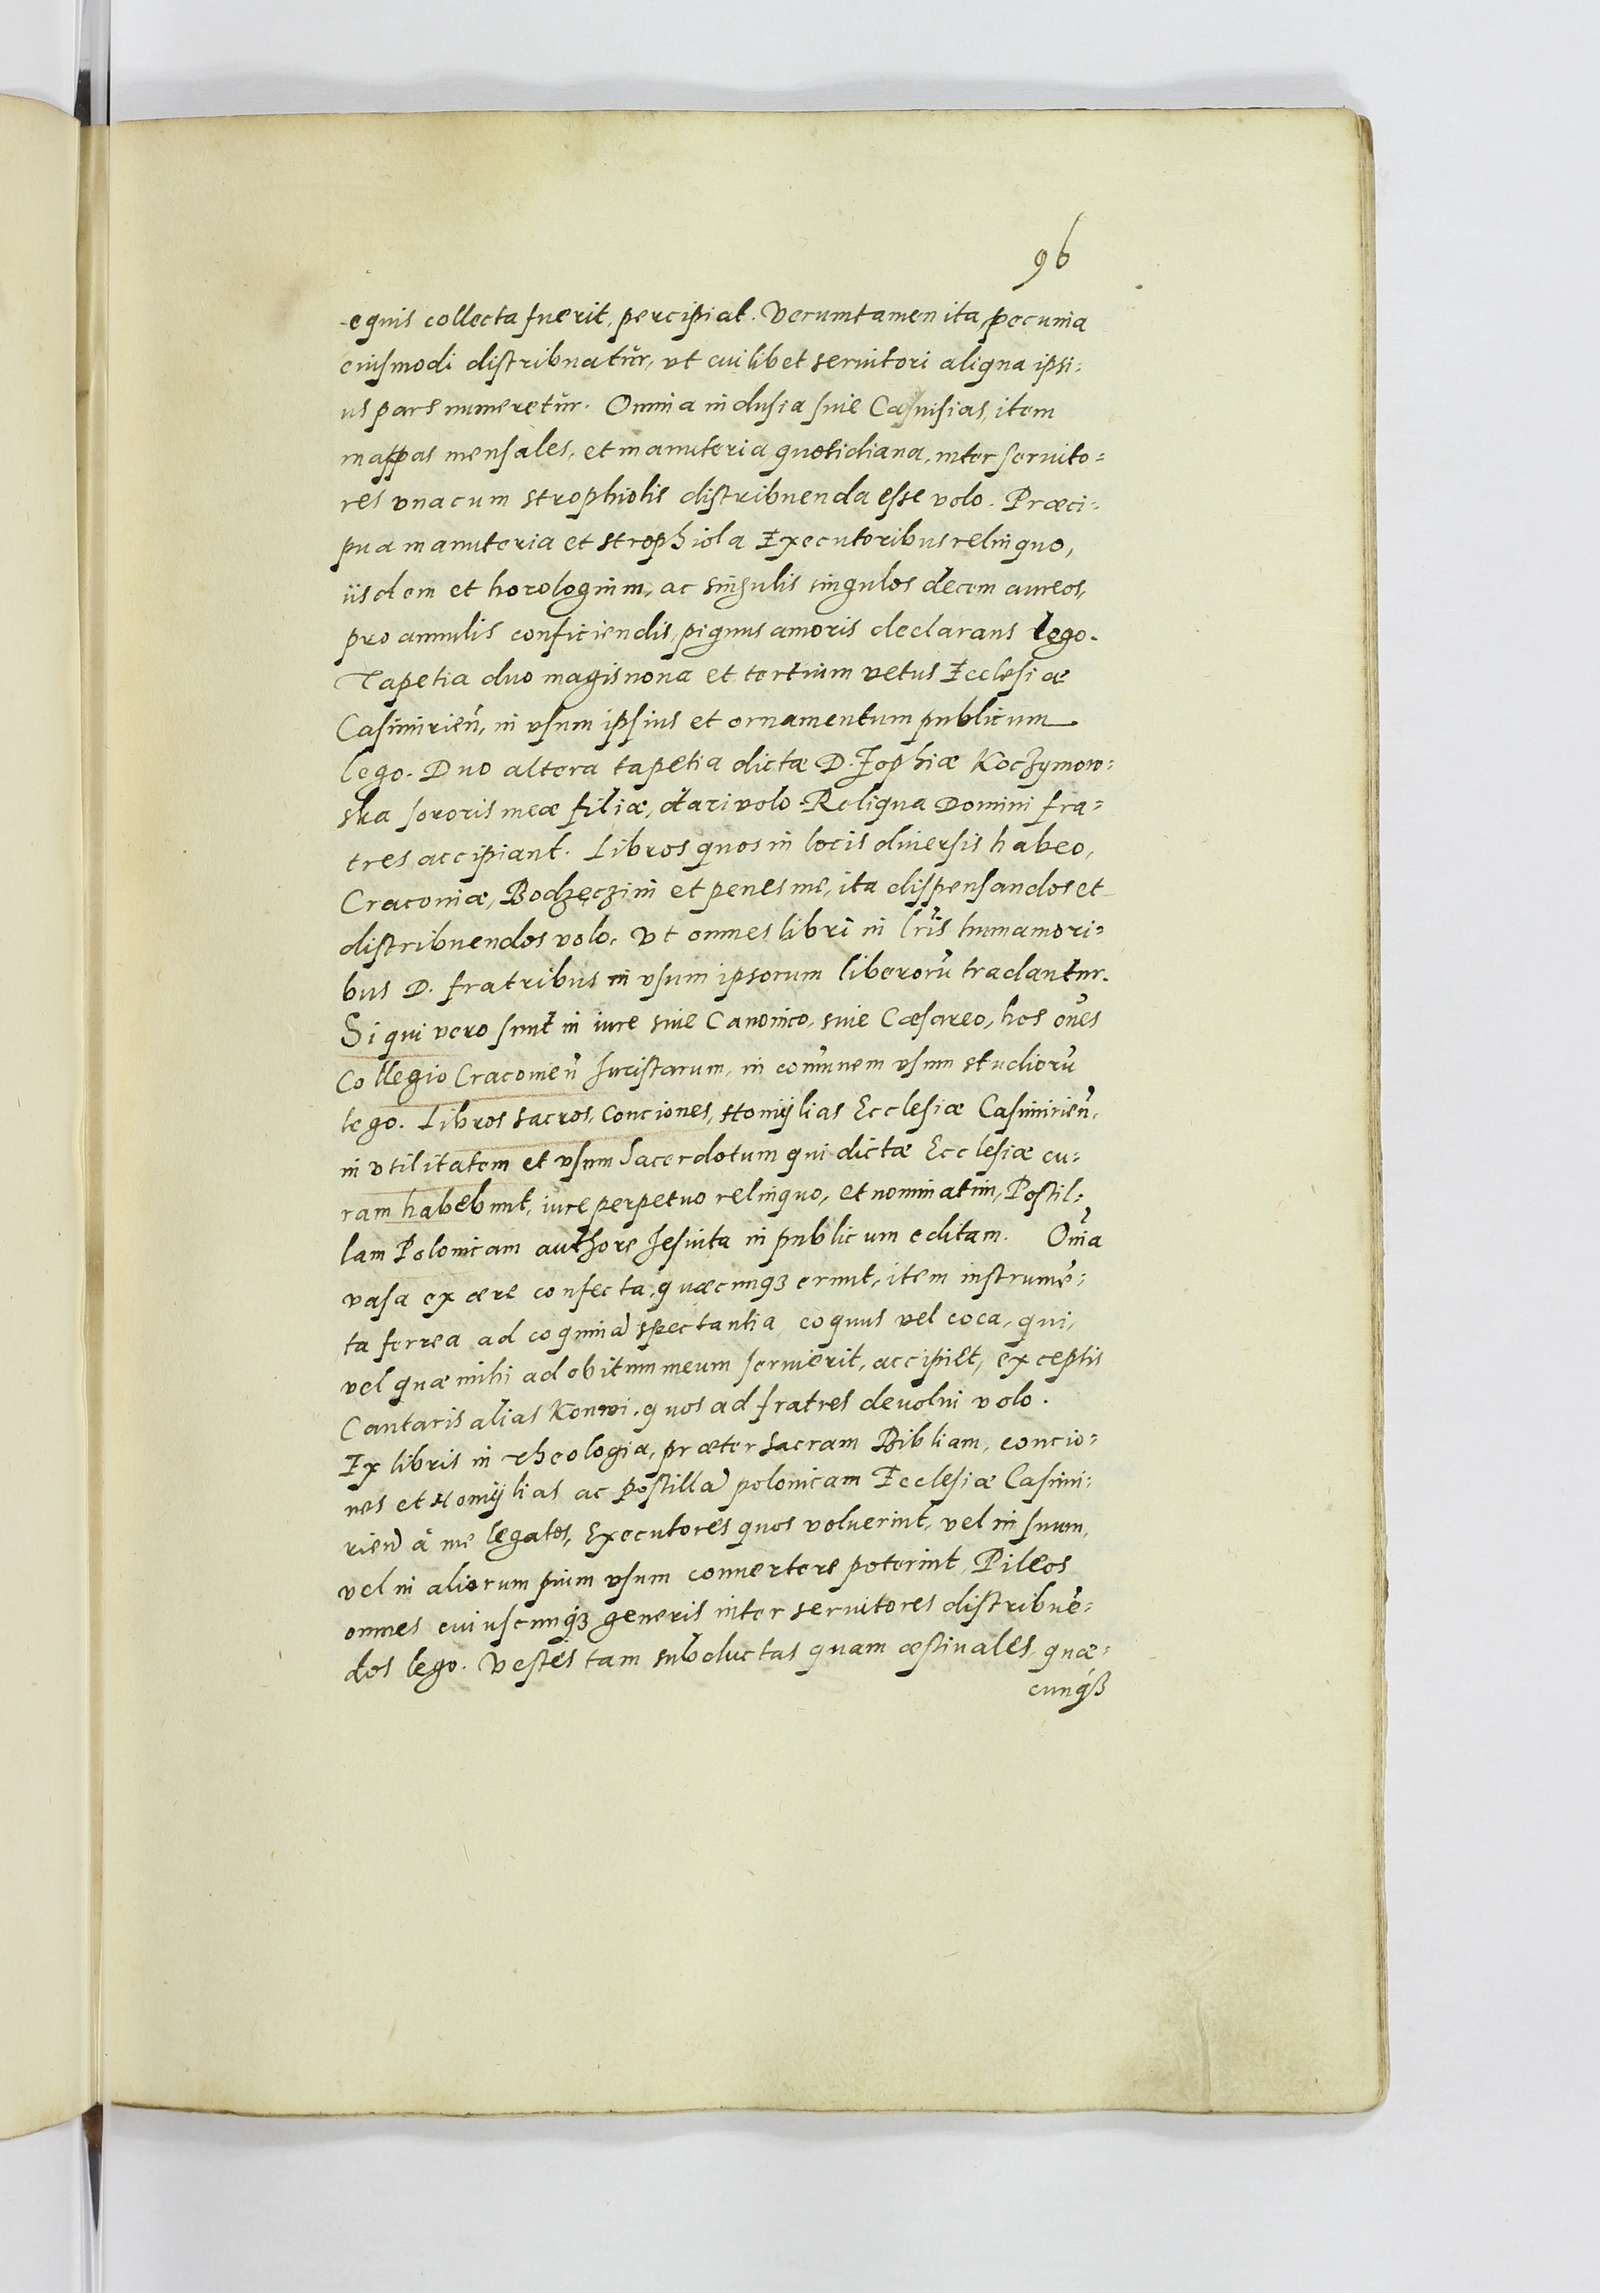 96
equis collecta fuerit, percipiat. Verumtamen ita pecunia
eiusmodi distribuatur, vt cuilibet seruitori aliqua ipsi=
us pars numeretur. Omnia indusia siue Camisias, item
mappas mensales, et manuteria quotidiana, inter seruito=
res vna cum strophiolis distribuenda esse volo. Præci=
pua manuteria et strophiola Executoribus relinquo,
iisdem et horologium, ac singulis singulos decem aureos,
pro annulis conficiendis, pignus amoris declarans lego.
Tapetia duo magis noua et tertium vetus Ecclesiæ
Casimirieñ, in vsum ipsius et ornamentum publicum
lego. Duo altera tapetia dictæ D. Zophiæ Koczymow=
ska sororis meæ filiæ, dari volo. Reliqua Domini fra=
tres accipiant. Libros quos in locis diuersis habeo,
Cracouiæ, Bodzęczini et penes me, ita dispensandos et
distribuendos volo, Vt omnes libri in lr̃is humaniori=
bus D. fratribus in vsum ipsorum liberorũ tradantur.
Si qui vero sunt in iure siue Canonico, siue Cæsareo, hos om̃es
Collegio Cracouieñ Iuristarum, in com̃unem vsum studiorũ
lego. Libros sacros, Conciones, Homijlias Ecclesiæ Casimirieñ,
in vtilitatem et vsum Sacerdotum qui dictæ Ecclesiæ cu=
ram habebunt, iure perpetuo relinquo, et nominatim, Postil=
lam Polonicam authore Jesuita in publicum editam. Om̃ia
vasa ex ære confecta, quæcunqꝫ erunt, item instrumẽ=
ta ferrea ad coquinã spectantia, coquus vel coca, qui,
vel quæ mihi ad obitum meum seruierit, accipiet, exceptis
Cantaris alias Konwi, quos ad fratres deuolui volo.
Ex libris in Theologia, præter Sacram Bibliam, concio=
nes et Homijlias ac Postillã polonicam Ecclesiæ Casimi=
rieñ à me legatos, Executores quos voluerint, vel in suum,
vel in aliorum pium vsum conuertere poterint, Pileos
omnes cuiuscunqꝫ generis inter seruitores distribuẽ=
dos lego. Vestes tam subductas quam æstiuales, quæ=
cunqꝫ